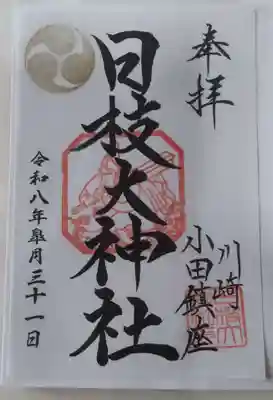 奉拝
川崎
小田鎮座
日枝大神社
令和八年皐月三十一日